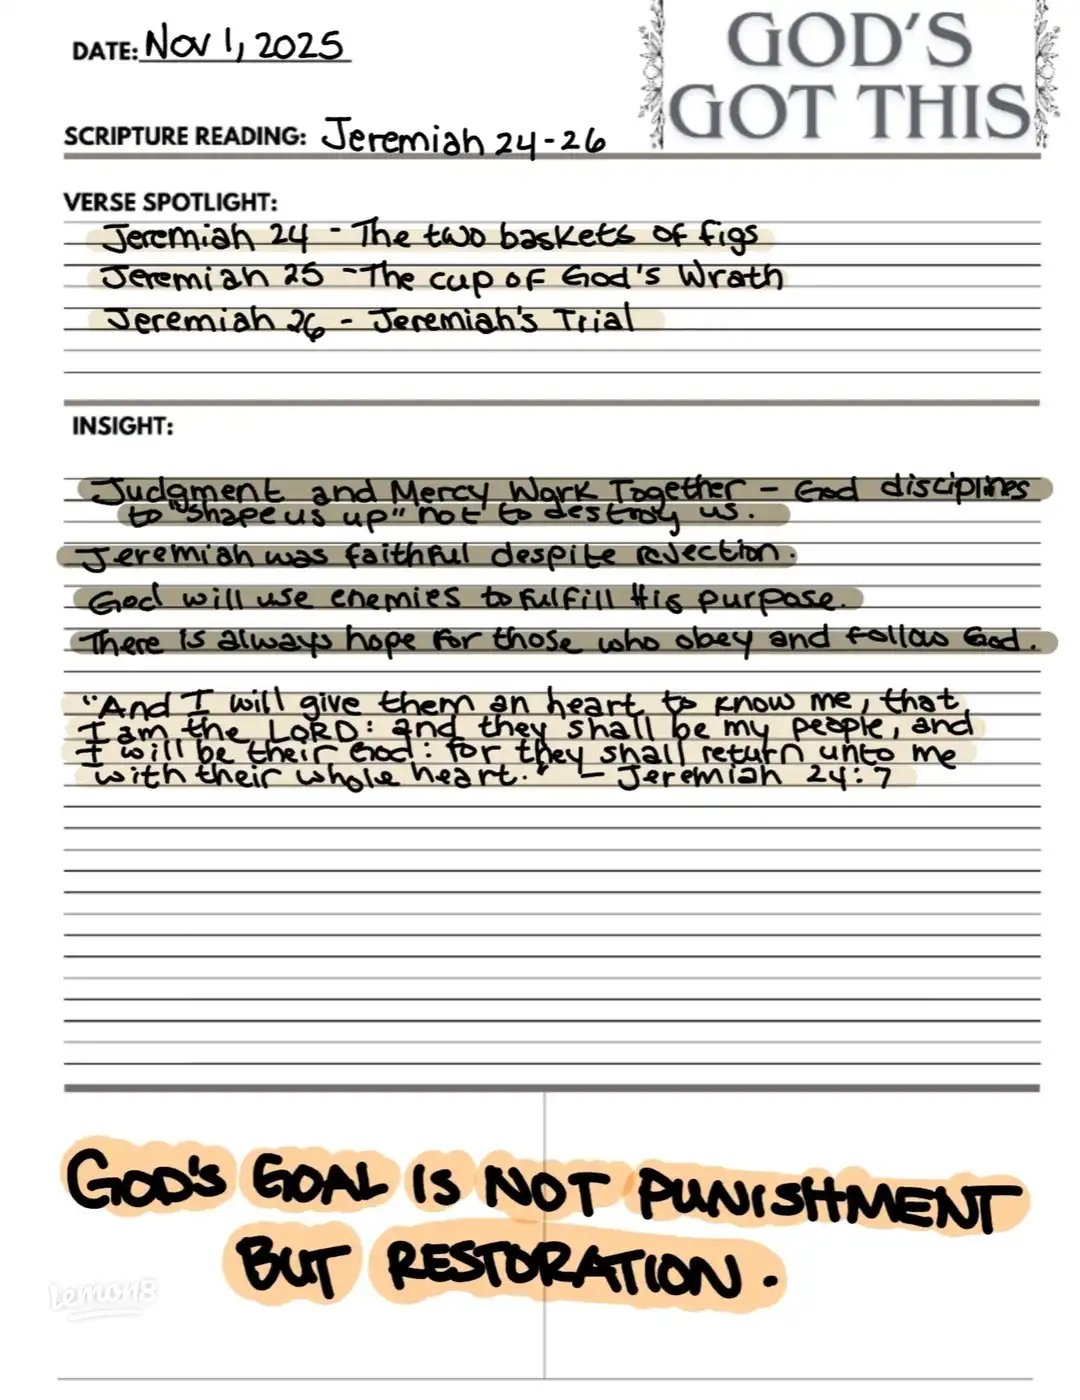 DATE: Nov 1, 2025
GOD'S
GOT THIS
SCRIPTURE READING: Jeremiah 24-26
VERSE SPOTLIGHT:
Jeremiah 24 - The two baskets of figs
Jeremiah 25 - The cup of God's Wrath
Jeremiah 26 - Jeremiah's Trial
INSIGHT:
Judgment and Mercy Work Together - God disciplines
to "shape us up" not to destroy us.
Jeremiah was faithful despite rejection.
God will use enemies to fulfill His purpose.
There is always hope for those who obey and follow God.
"And I will give them an heart to know me, that
I am the LORD: and they shall be my people, and
I will be their God: for they shall return unto me
with their whole heart." - Jeremiah 24:7
GOD'S GOAL IS NOT PUNISHMENT
BUT RESTORATION.
Lemon8